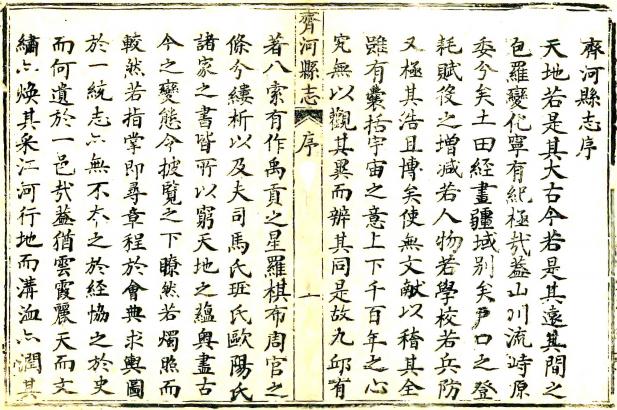 齊河縣志序
天地若是其大古今若是其遠其間之
包羅變化寧有紀極哉葢山川流峙原
委兮矣土田經畫疆域别矣戸口之登
耗賦役之增減若人物若學校若兵防
又極其浩且博矣使無文獻以稽其全
雖有囊括宇宙之意上下千百年之心
究無以觀其異而辨其同是故九邱有
齊河縣志
序
一
著八索有作禹貢之星羅棋布周官之
條分縷析以及夫司馬氏班氏歐陽氏
諸家之書皆所以窮天地之蘊奥盡古
今之變態今披覽之下瞭然若燭照而
較然若指掌即尋章程於會典求輿圖
於一統志亦無不夲之於經恊之於史
而何遺於一邑哉葢猶雲霞麗天而文
繡亦煥其采江河行地而溝洫亦潤其